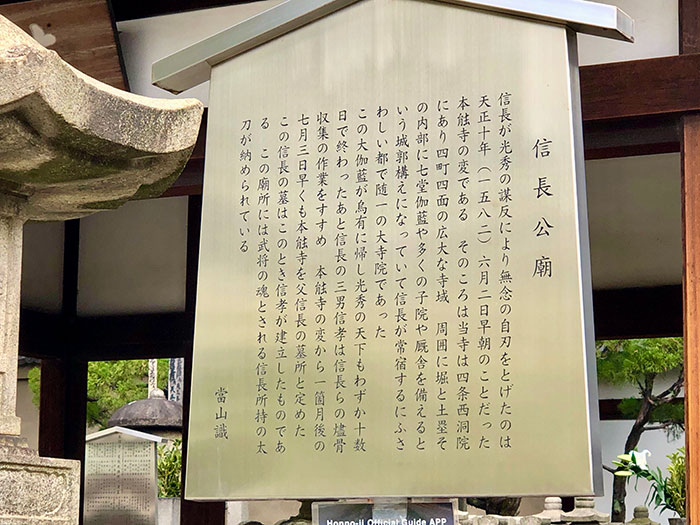 信長公廟
信長が光秀の謀反により無念の自刃をとげたのは
天正十年（一五八二）六月二日早朝のことだった
本能寺の変である そのころは当寺は四条西洞院
にあり四町四面の広大な寺域 周囲に堀と土塁そ
の内部に七堂伽藍や多くの子院や厩舎を備えると
いう城郭構えになっていて信長が常宿するにふさ
わしい都で随一の大寺院であった
この大伽藍が烏有に帰し光秀の天下もわずか十数
日で終わったあと信長の三男信孝は信長らの燼骨
収集の作業をすすめ 本能寺の変から一箇月後の
七月三日早くも本能寺を父信長の墓所と定めた
この信長の墓はこのとき信孝が建立したものであ
る この廟所には武将の魂とされる信長所持の太
刀が納められている
當山識
Honno-ji Official Guide APP